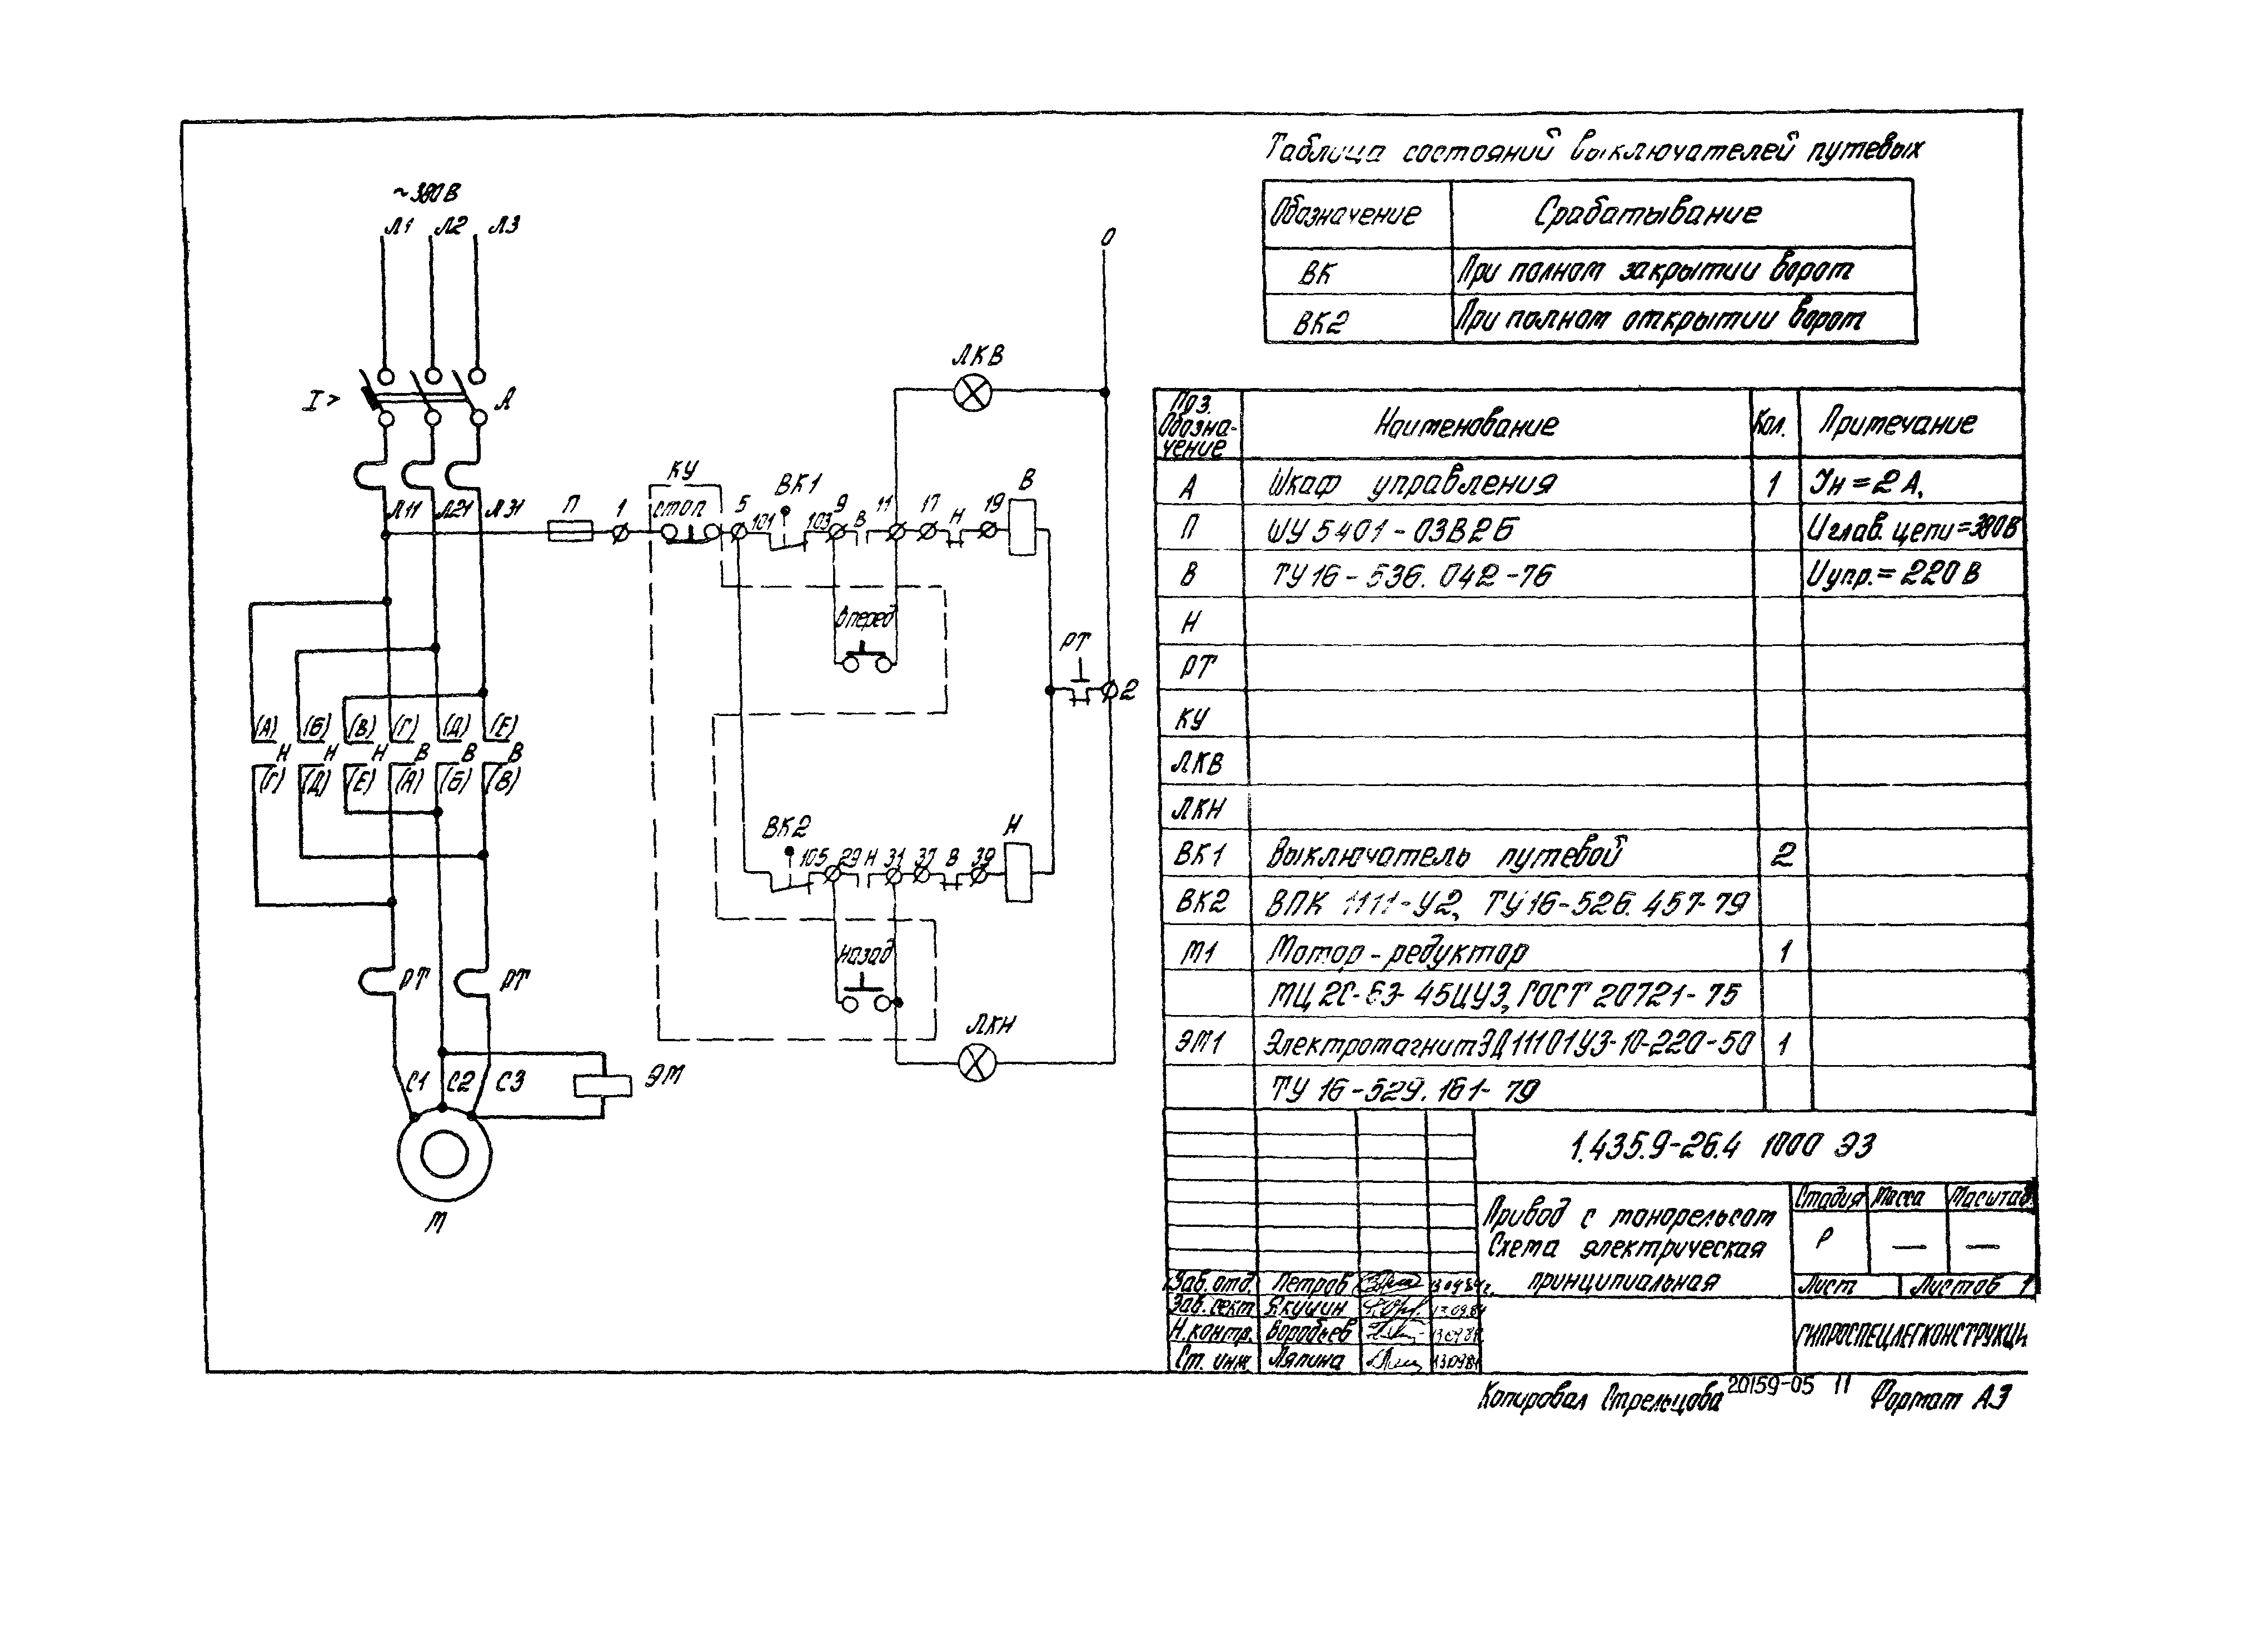 ~380В
Л1 Л2 Л3
I> А
Л11 Л21 Л31
П 1
КУ
стоп
5 101 ВК1 103 9 В 11 17 Н 19 В
ЛКВ
0
Вперед
РТ
2
(А) (Б) (В) (Г) (Д) (Е)
Н Н Н В В В
(Г) (Д) (Е) (А) (Б) (В)
ВК2 105 29 Н 31 37 В 39 Н
Назад
ЛКН
РТ РТ
С1 С2 С3
ЭМ
М
Таблица состояний выключателей путевых
Обозначение Срабатывание
ВК При полном закрытии ворот
ВК2 При полном открытии ворот
Поз.
Обозна-
чение
Наименование Кол. Примечание
А Шкаф управления 1 Iн = 2А,
П ШУ 5401-03В2Б Uглав. цепи=380В
В ТУ16-536.042-76 Uупр.= 220 В
Н
РТ
КУ
ЛКВ
ЛКН
ВК1 Выключатель путевой 2
ВК2 ВПК 1111-У2, ТУ16-526.457-79
М1 Мотор-редуктор 1
МЦ2С-63-45ЦУ3, ГОСТ 20721-75
ЭМ1 Электромагнит ЭД11101У3-10-220-50 1
ТУ 16-529.161-79
1.435.9-26.4 1000 ЭЗ
Привод с монорельсом
Схема электрическая
принципиальная
Стадия Масса Масштаб
Р — —
Лист Листов 1
Зав. отд. Петров 13.09.84г.
Зав. сект Якушин 13.09.84
Н.контр. Воробьев 13.09.84
Ст. инж. Ляпина 13.09.84
ГИПРОСПЕЦЛЕГКОНСТРУКЦИ
Копировал Стрельцова 20159-05 11 Формат А3